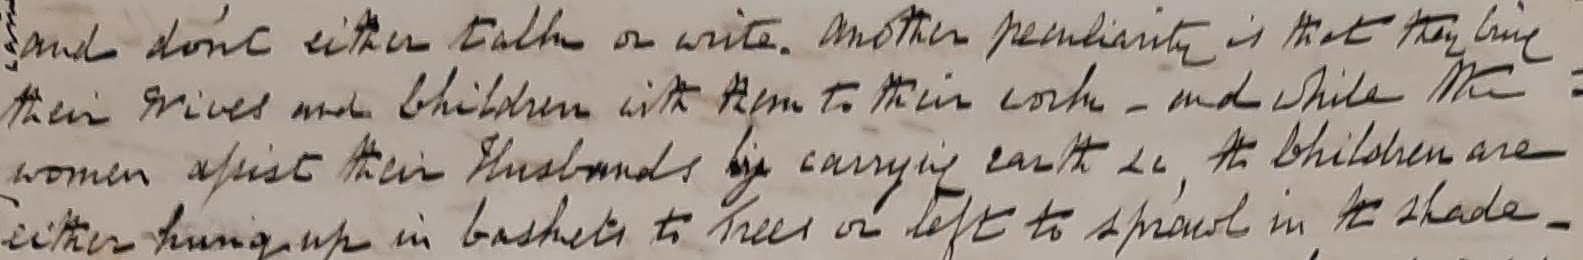 and don't either talk or write. Another peculiarity is that they bring
their Wives and Children with them to their work - and while the
women assist their Husbands by carrying earth &c, the Children are
either hung up in baskets to Trees or left to sprawl in the shade -